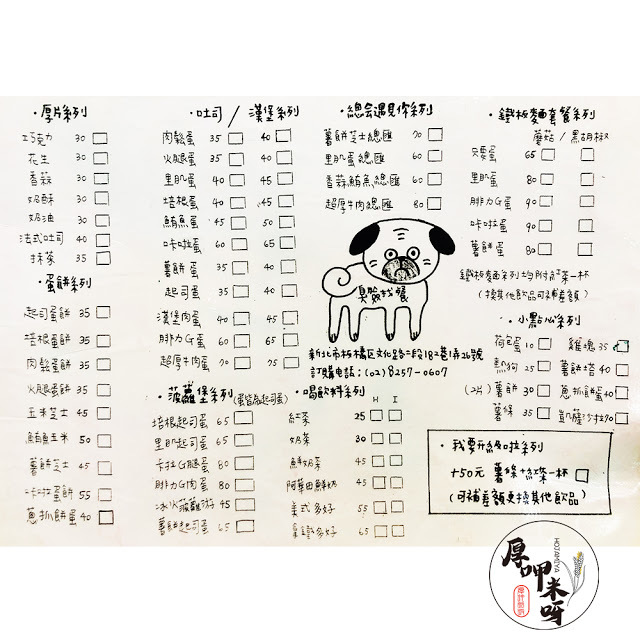 ·厚片系列
巧克力 30
花生 30
香蒜 30
奶酥 30
奶油 30
法式吐司 40
抹茶 35
·蛋餅系列
起司蛋餅 35
培根蛋餅 35
肉鬆蛋餅 35
火腿蛋餅 35
玉米芝士 45
鮪魚玉米 50
薯餅芝士 45
咔啦蛋餅 55
蔥抓餅蛋 40
·吐司 / 漢堡系列
肉鬆蛋 35 40
火腿蛋 35 40
里肌蛋 40 45
培根蛋 40 45
鮪魚蛋 45 50
咔啦蛋 60 65
薯餅蛋 35 40
起司蛋 35 40
漢堡肉蛋 40 45
腓力G蛋 60 65
超厚牛肉蛋 70 75
·菠蘿堡系列(蛋皆為起司蛋)
培根起司蛋 65
里肌起司蛋 65
卡拉G腿蛋 80
腓力G肉蛋 80
冰火菠蘿油 45
薯餅起司蛋 65
·總會遇見你系列
薯餅芝士總匯 70
里肌蛋總匯 60
香蒜鮪魚總匯 60
超厚牛肉總匯 70
臭臉找餐
新北市板橋區文化路二段182巷1弄26號
訂購電話:(02)8257-0607
·喝飲料系列 H I
紅茶 25
奶茶 30
鮮奶茶 45
阿華田鮮奶 45
美式多好 55
拿鐵多好 65
·鐵板麵套餐系列
蘑菇 / 黑胡椒
只要蛋 65
里肌蛋 90
腓力G蛋 90
咔啦蛋 90
薯餅蛋 80
鐵板麵系列均附紅茶一杯
(換其他飲品可補差額)
·小點心系列
荷包蛋 10 雞塊 35
熱狗 25 薯餅塔 40
(2片) 薯餅 30 蔥抓餅蛋 40
薯條 35 凱薩沙拉 70
·我要升級啦系列
+50元 薯條+紅茶一杯
(可補差額更換其他飲品)
厚呷米呀
HOTAMIYA